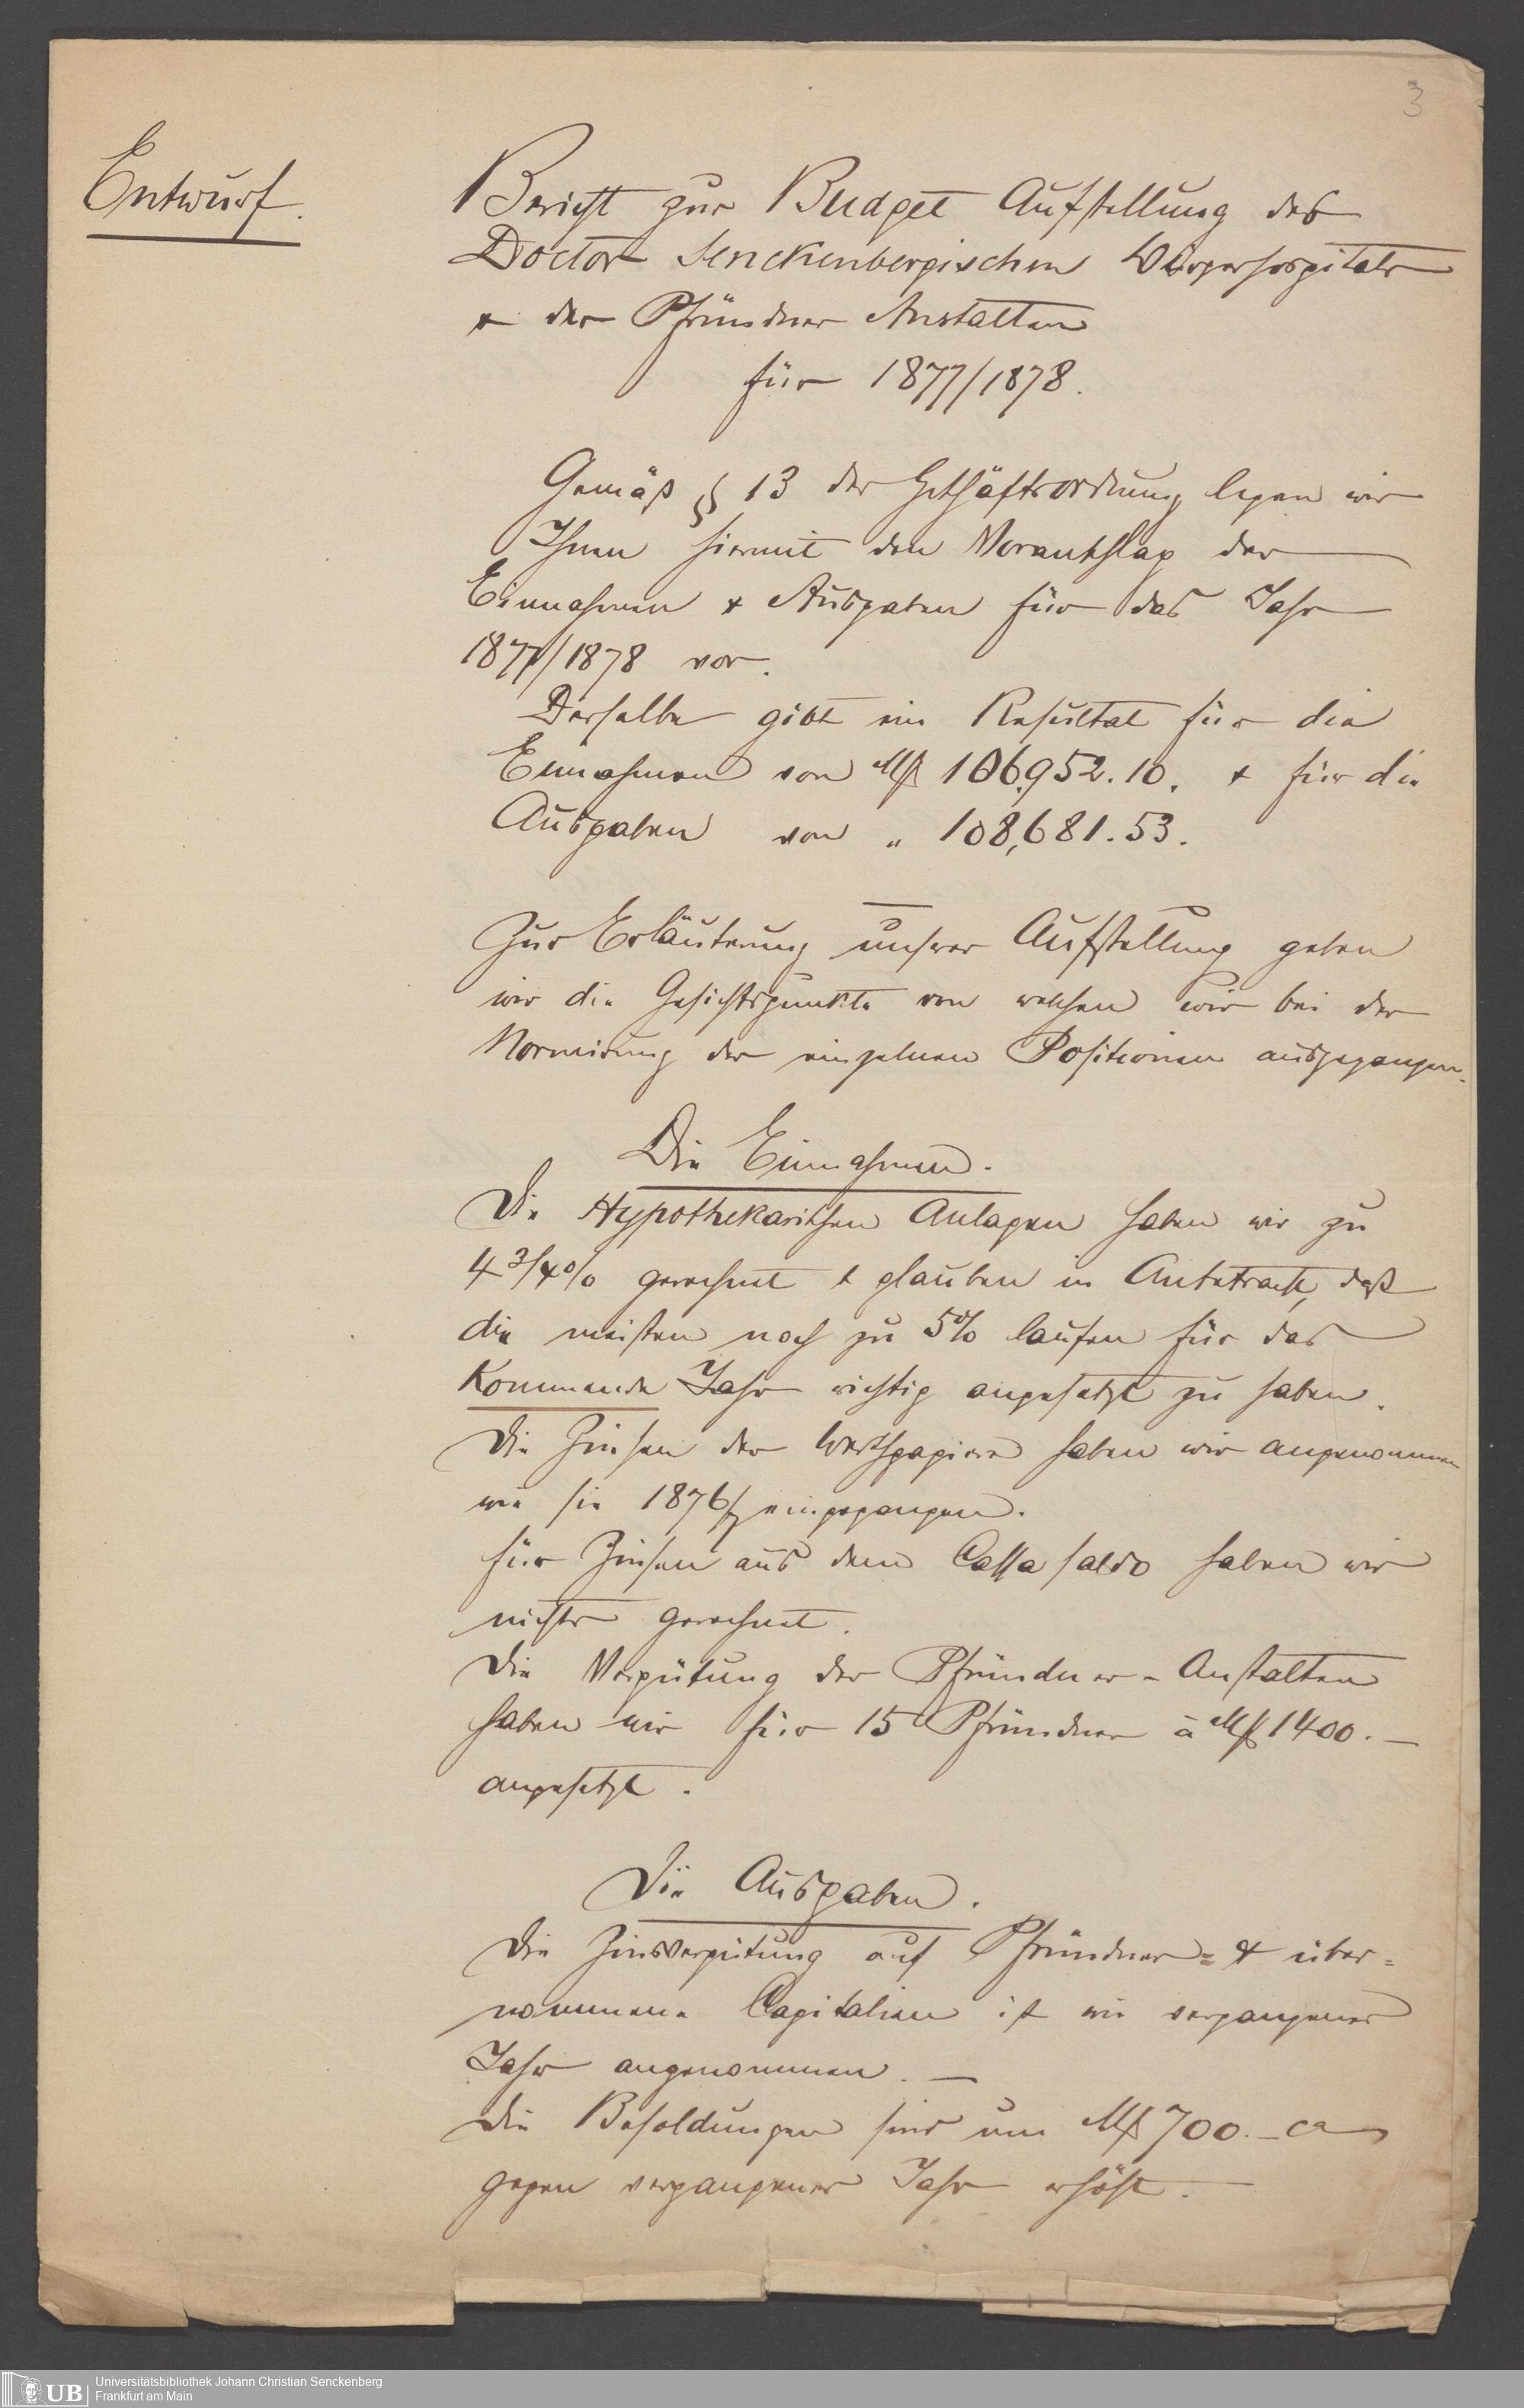 3
Entwurf.
Bericht zur Budget Aufstellung des
Doctor Senckenbergischen Bürgerhospitals
& der Pfründner Anstalten
für 1877/1878.
Gemäß § 13 der Geschäftsordnung legen wir
Ihnen hiermit den Voranschlag der
Einnahmen & Ausgaben für das Jahr
1877/1878 vor.
Derselbe gibt ein Resultat für die
Einnahmen von M 106,952.10. & für die
Ausgaben von " 108,681.53.
Zur Erläuterung unserer Aufstellung geben
wir die Gesichtspunkte von welchen wir bei der
Normirung der einzelnen Positionen ausgegangen.
Die Einnahmen.
Die Hypothekarischen Anlagen haben wir zu
4 3/4 % gerechnet & glauben in Anbetracht, daß
die meisten noch zu 5% laufen für das
kommende Jahr richtig angesetzt zu haben.
Die Zinsen der Werthpapiere haben wir angenommen
wie sie 1876/7 eingegangen.
für Zinsen aus dem Cassa Saldo haben wir
nichts gerechnet.
Die Vergütung der Pfründner-Anstalten
haben wir für 15 Pfründner à M 1400.—
angesetzt.
Die Ausgaben.
Die Zinsvergütung auf Pfründner= & über=
nommene Capitalien ist wie vergangenes
Jahr angenommen. —
Die Besoldungen sind um M 700.— ca
gegen vergangenes Jahr erhöht. —
UB
Universitätsbibliothek Johann Christian Senckenberg
Frankfurt am Main